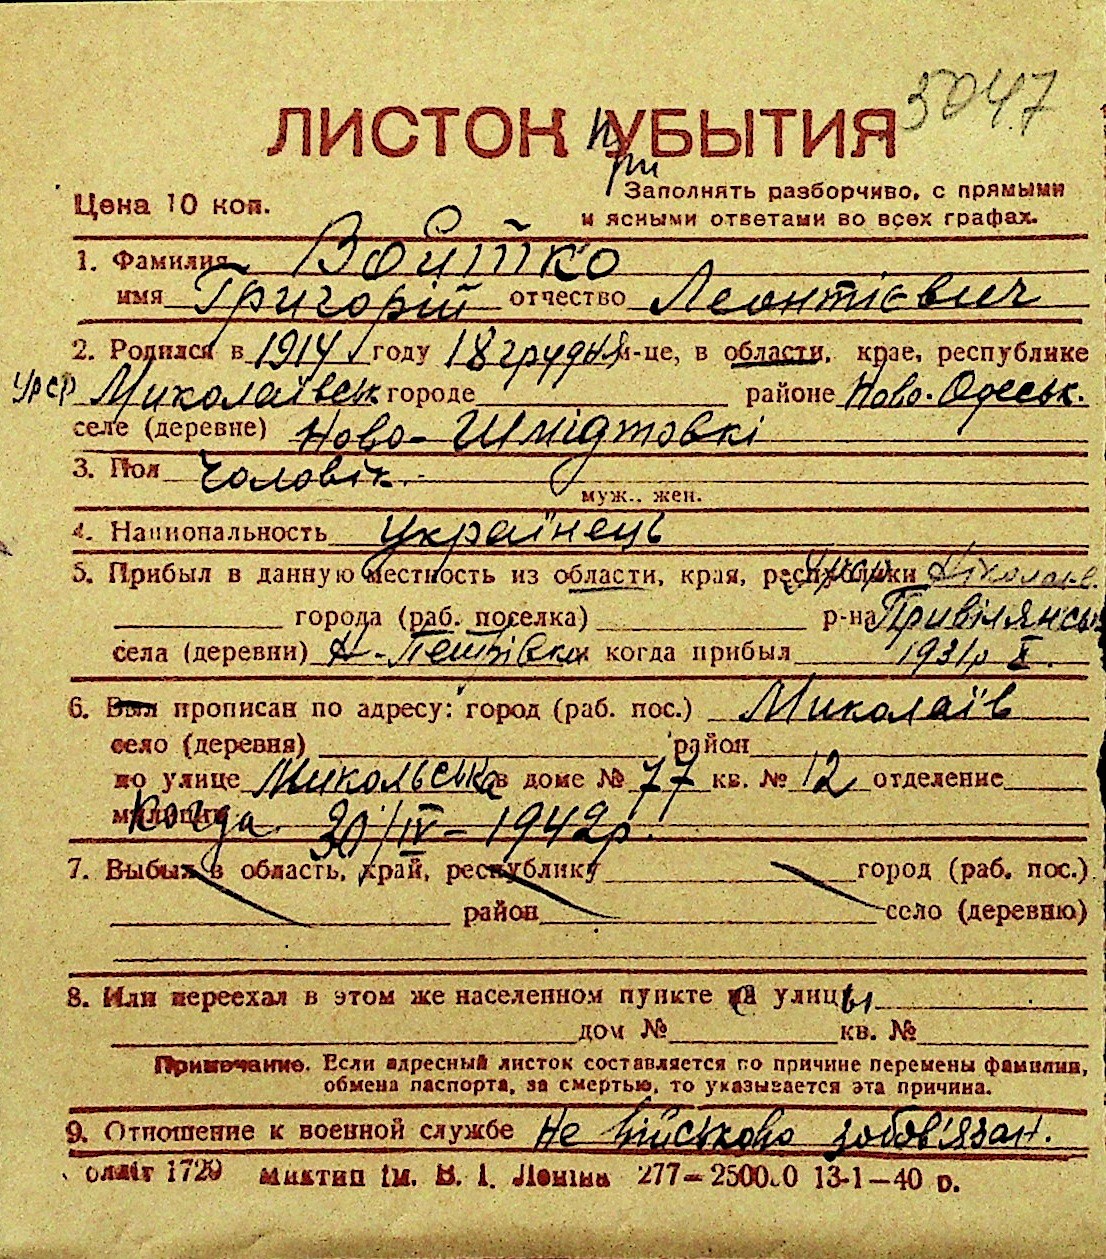 3047
ЛИСТОК при УБЫТИЯ
Цена 10 коп.
Заполнять разборчиво, с прямыми
и ясными ответами во всех графах.
1. Фамилия Войтко
имя Григорій отчество Леонтієвич
2. Родился в 1914 году 18 грудня м-це, в области, крае, республике
УРСР Миколаївськ городе районе Ново-Одеськ.
селе (деревне) Ново-Шмідтовкі
3. Пол чоловік.
муж., жен.
4. Национальность українець
5. Прибыл в данную местность из области, края, республики УРСР Ніколаєв.
города (раб. поселка) р-на Привілянськ
села (деревни) когда прибыл 1931р X.
6. Был прописан по адресу: город (раб. пос.) Миколаїв
село (деревня) район
по улице Микольська в доме № 77 кв. № 12 отделение
милиции когда 30/IV-1942р.
7. Выбыл в область, край, республику город (раб. пос.)
район село (деревню)
8. Или переехал в этом же населенном пункте с улицы
дом № кв. №
Примечание. Если адресный листок составляется по причине перемены фамилии,
обмена паспорта, за смертью, то указывается эта причина.
9. Отношение к военной службе не військово зобов'язан.
обліт 1729 Миктип ім. В. І. Леніна 277—2500.0 13-1—40 р.